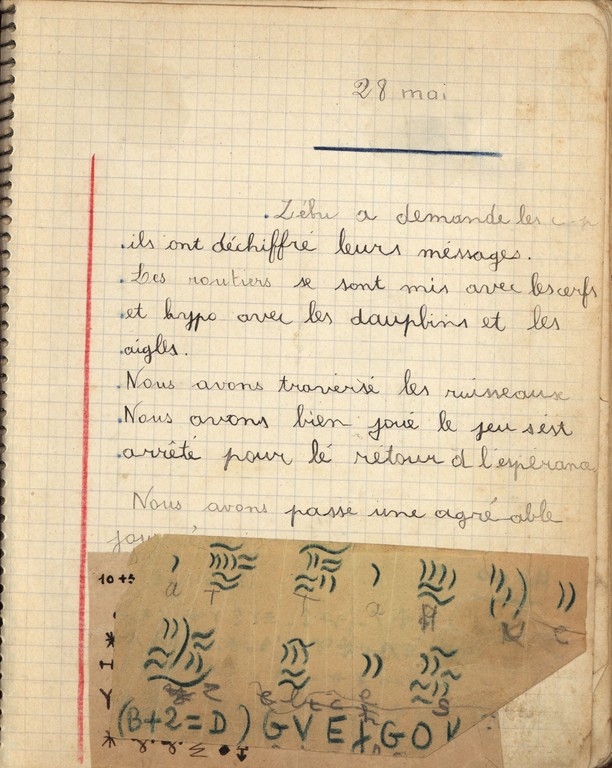 28 mai
Zébu a demande les
ils ont déchiffré leurs méssages.
Les routiers se sont mis avec les cerfs
et hypo avec les dauphins et les
aigles.
Nous avons traversé les ruisseaux
Nous avons bien joué le jeu s'est
arrêté pour lé rétour d l'espérance
Nous avons passe une agré able
a T T a A K e
(B+2=D) GVE